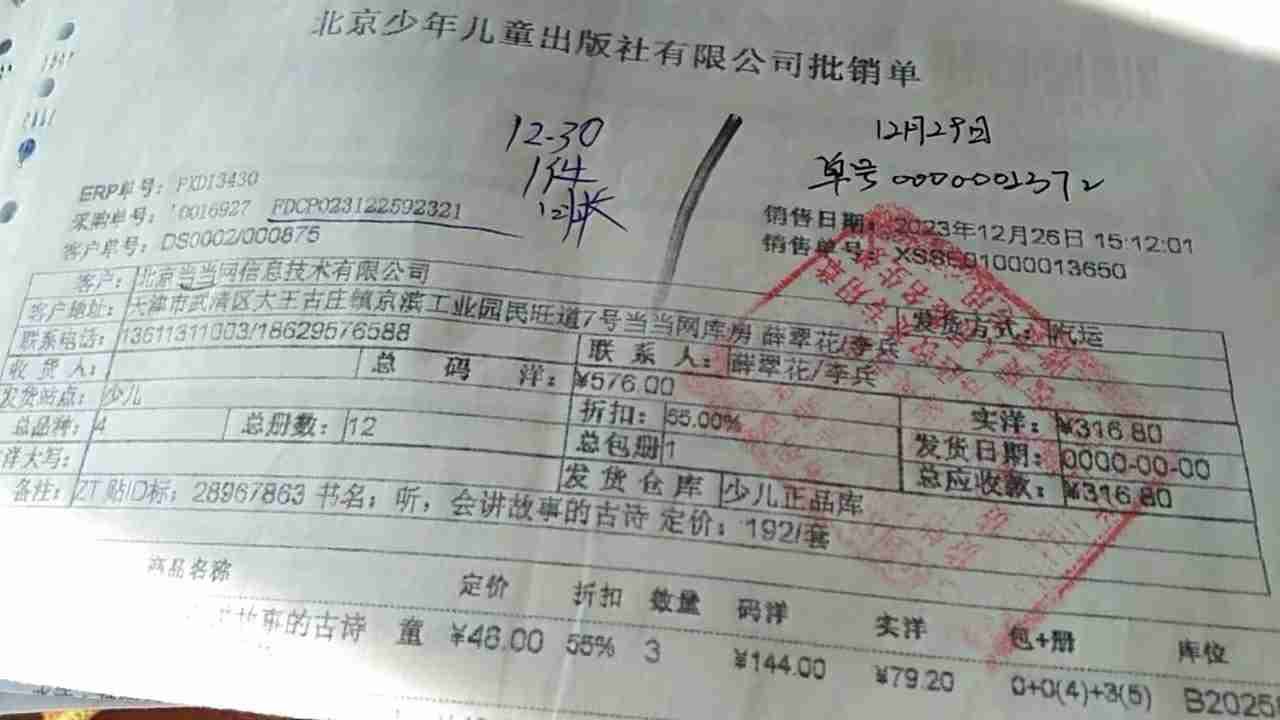 北京少年儿童出版社有限公司批销单
12-30
1件
12月29日
单号0000001372
ERP单号：PXD13430
采购单号：0016927 FDCP023122592321
客户单号：DS0002/000875
销售日期：2023年12月26日 15:12:01
销售单号：XSSE01000013650
客户：北京当当网信息技术有限公司
客户地址：天津市武清区大王古庄镇京滨工业园民旺道7号当当网库房 薛翠花/李兵 发货方式：汽运
联系电话：13611311003/18629576588 联系人：薛翠花/李兵
收货人： 总码洋：¥576.00 实洋：¥316.80
发货站点：少儿 折扣：55.00% 发货日期：0000-00-00
总品种：4 总册数：12 总包册 1 总应收款：¥316.80
洋大写： 发货仓库 少儿正品库
备注：ZT 贴ID标：28967863 书名：听，会讲故事的古诗 定价：192/套
商品名称 定价 折扣 数量 码洋 实洋 包+册 库位
故事的古诗 童 ¥48.00 55% 3 ¥144.00 ¥79.20 0+0(4)+3(5) B2025